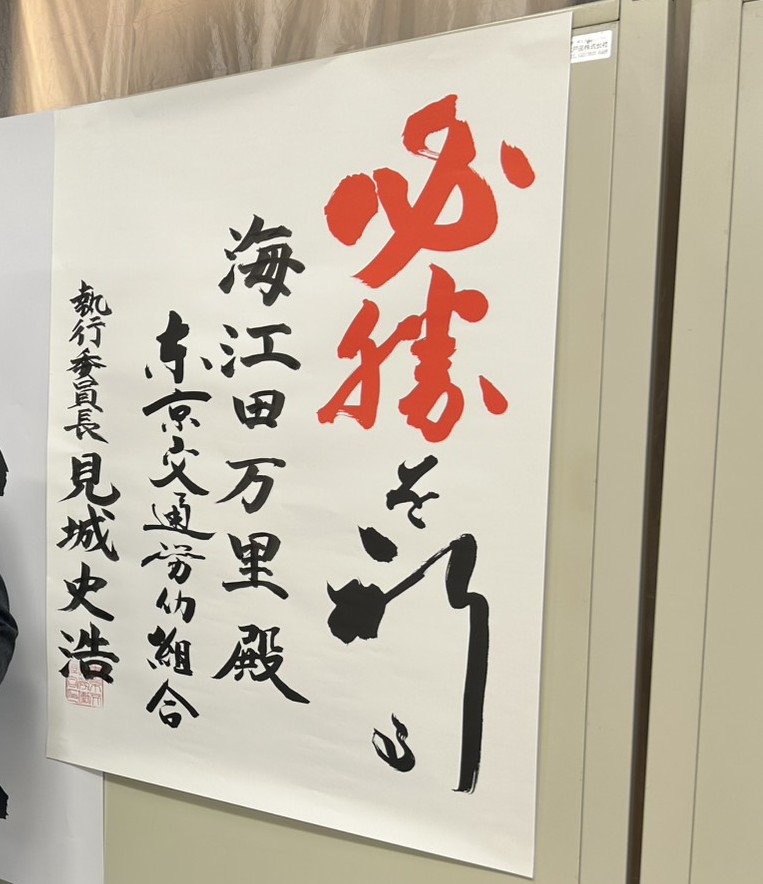 必勝を祈る
海江田万里殿
東京交通労仂組合
執行委員長 見城史浩